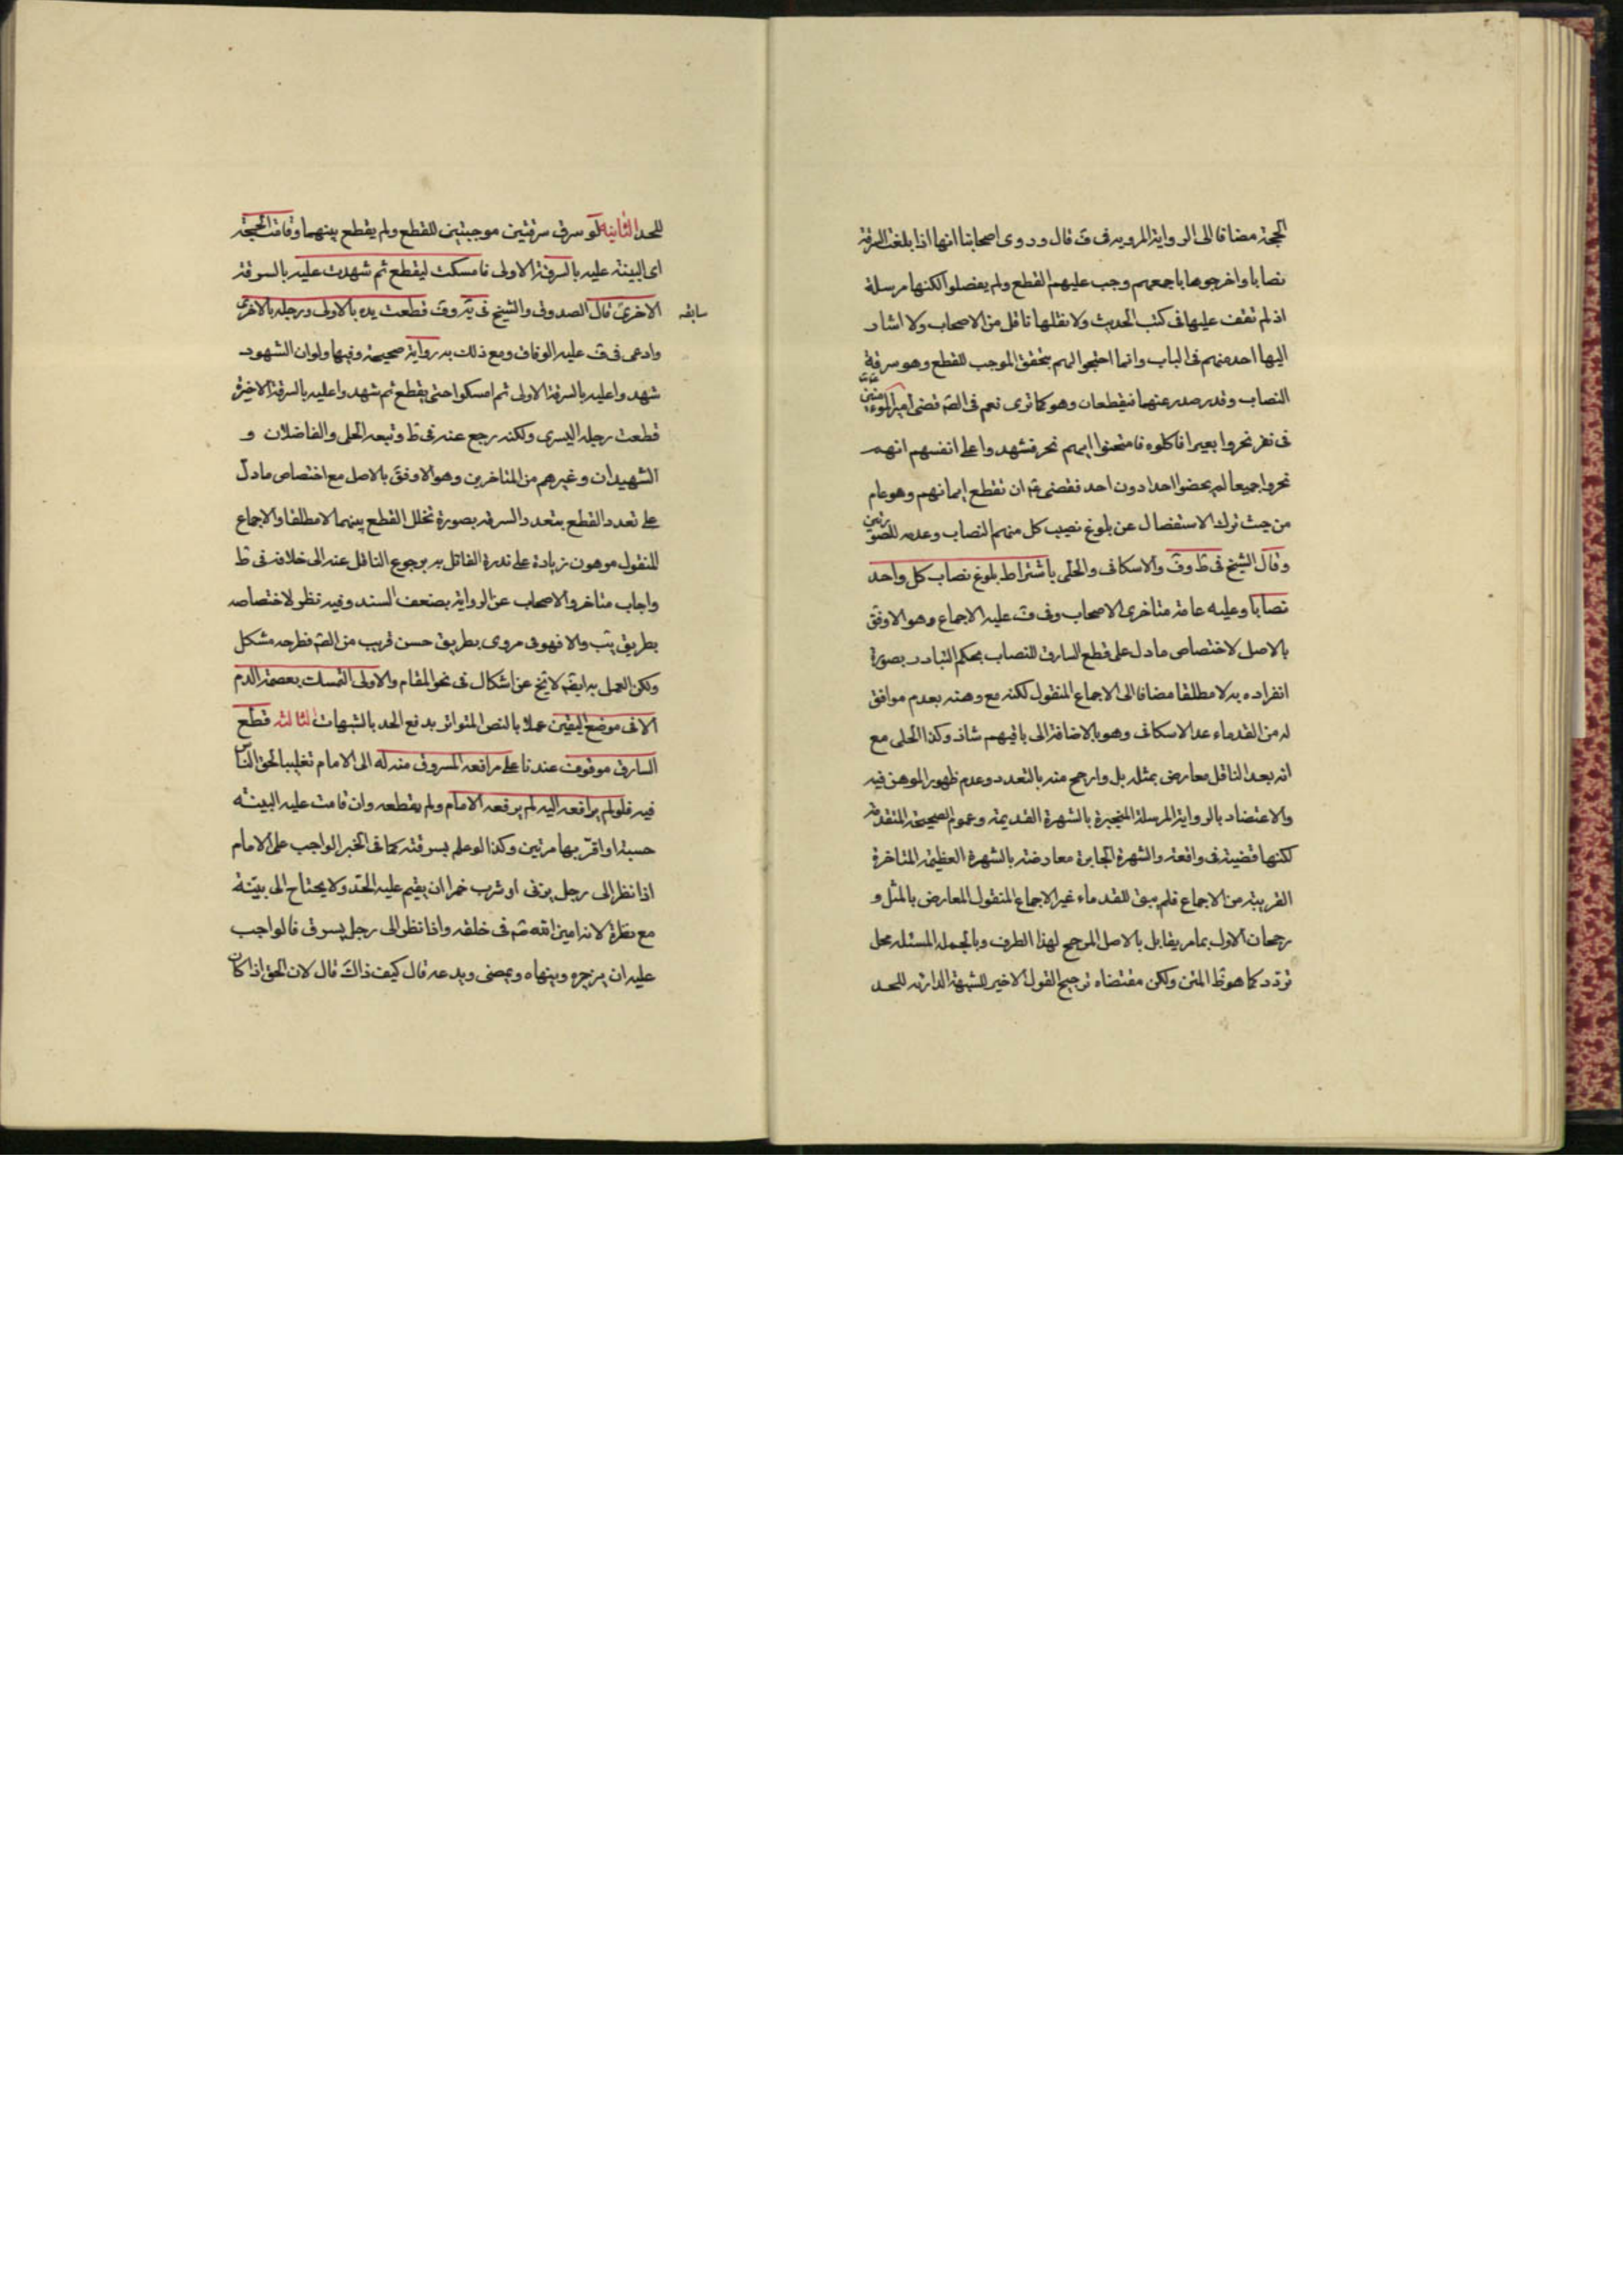 الحجة مضافا الى الرواية المروية فى ف قال وروى اصحابنا انها اذا بلغت السرقة
نصابا واخرجوها باجمعهم وجب عليهم القطع ولم يفصلوا لكنها مرسلة
اذ لم نقف عليها فى كتب الحديث ولا نقلها ناقل من الاصحاب ولا اشار
اليها احد منهم فى الباب وانما احتجوا لهم بتحقق الموجب للقطع وهو سرقة
النصاب وقد صدر عنهما فيقطعان وهو كما ترى نعم فى الصّ قضى امير المومنين
فى نفر نحروا بعيرا فاكلوه فامتحنوا ايهم نحر فشهدوا على انفسهم انهم
نحروا جميعا لم يخصوا احدا دون احد فقضى ان تقطع ايمانهم وهو عام
من حيث ترك الاستفصال عن بلوغ نصيب كل منهم النصاب وعدمه للصورتين
وقال الشيخ فى ط وف والاسكافى والحلى باشتراط بلوغ نصاب كل واحد
نصابا وعليه عامة متاخرى الاصحاب وفى ف عليه الاجماع وهو الاوفق
بالاصل لاختصاص ما دل على قطع السارق للنصاب بحكم التبادر بصورة
انفراده به لا مطلقا مضافا الى الاجماع المنقول لكنه مع وهنه بعدم موافق
له من القدماء عدا الاسكافى وهو بالاضافة الى باقيهم شاذ وكذا الحلى مع
انه بعد الناقل معارض بمثله بل وارجح منه بالتعدد وعدم ظهور الموهن فيه
والاعتضاد بالرواية المرسلة المنجبرة بالشهرة القديمة وعموم الصحيحة المتقدمة
لكنها قضية فى واقعة والشهرة الجابرة معارضة بالشهرة العظيمة المتاخرة
القريبة من الاجماع فلم يبق للقدماء غير الاجماع المنقول المعارض بالمثل و
رجحان الاول بما مر يقابل بالاصل المرجح لهذا الطرف وبالجملة المسئلة محل
تردد كما هو ظ المتن ولكن مقتضاه ترجيح القول الاخير للشبهة الدارئة للحد
للحد الثانية لو سرق سرقتين موجبتين للقطع ولم يقطع بينهما وقامت الحجة
اى البينة عليه بالسرقة الاولى فامسكت ليقطع ثم شهدت عليه بالسرقة
سابقه
الاخرى قال الصدوق والشيخ فى يه وف قطعت يده بالاولى ورجله بالاخرى
وادعى فى ف عليه الوفاق ومع ذلك به رواية صحيحة وفيها ولو ان الشهود
شهدوا عليه بالسرقة الاولى ثم امسكوا حتى يقطع ثم شهدوا عليه بالسرقة الاخيرة
قطعت رجله اليسرى ولكنه رجع عنه فى ط وتبعه الحلى والفاضلان و
الشهيدان وغيرهم من المتاخرين وهو الاوفق بالاصل مع اختصاص ما دل
على تعدد القطع بتعدد السرقة بصورة تخلل القطع بينهما لا مطلقا والاجماع
المنقول موهون زيادة على ندرة القائل به برجوع الناقل عنه الى خلافه فى ط
واجاب متاخرو الاصحاب عن الرواية بضعف السند وفيه نظر لاختصاصه
بطريق يب والا فهو فى مروى بطريق حسن قريب من الصّ فطرحه مشكل
ولكن العمل به ايضا لا يخ عن اشكال فى نحو المقام والاولى التمسك بعصمة الدم
الا فى موضع اليقين عملا بالنص المتواتر بدفع الحد بالشبهات الثالثة قطع
السارق موقوف عندنا على مرافعة المسروق منه له الى الامام تغليبا لحق الناس
فيه فلو لم يرافعه اليه لم يرفعه الامام ولم يقطعه وان قامت عليه البينة
حسبة او اقر بها مرتين وكذا لو علم بسرقته كما فى الخبر الواجب على الامام
اذا نظر الى رجل يزنى او شرب خمرا ان يقيم عليه الحد ولا يحتاج الى بينة
مع نظرة لانه امين الله تم فى خلقه واذا نظر الى رجل يسرق فالواجب
عليه ان يزجره وينهاه ويمضى ويدعه قال كيف ذاك قال لان الحق اذا كان